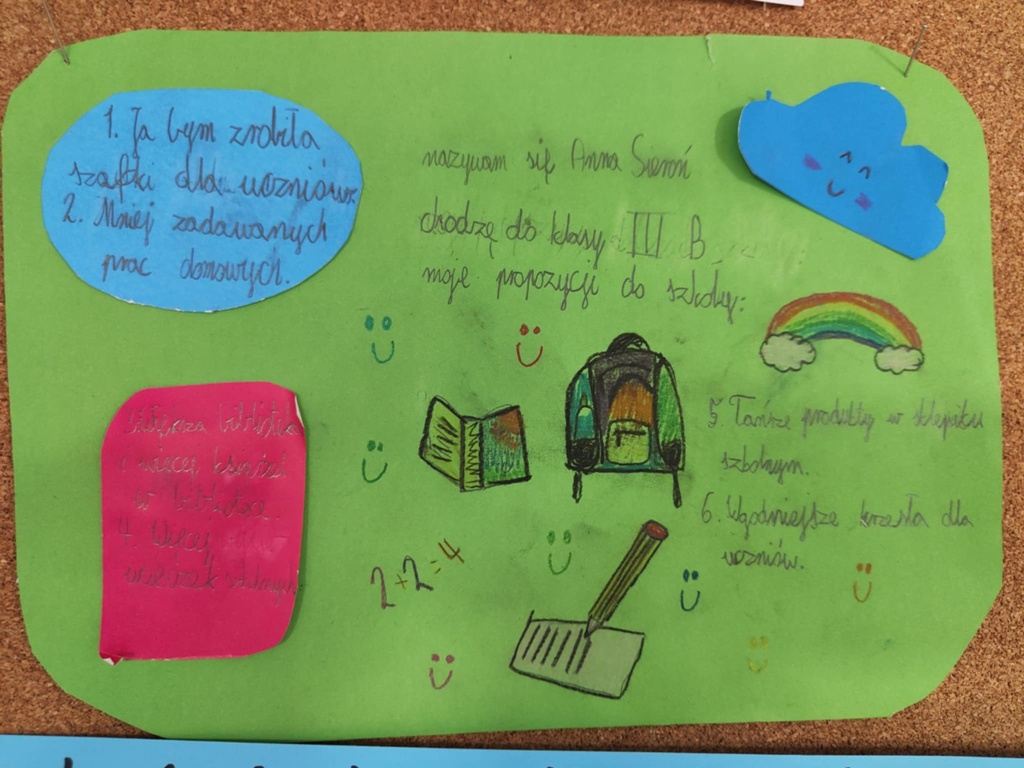 nazywam się Anna Sieroń
chodzę do klasy III B
moje propozycji do szkoły:
1. Ja bym zrobiła
szafki dla uczniów.
2. Mniej zadawanych
prac domowych.
biblioteka
i więcej książek
w bibliotece.
4. Więcej
wycieczek szkolnych
5. Tańsze produkty w sklepiku
szkolnym.
6. Wygodniejsze krzesła dla
uczniów.
2+2=4